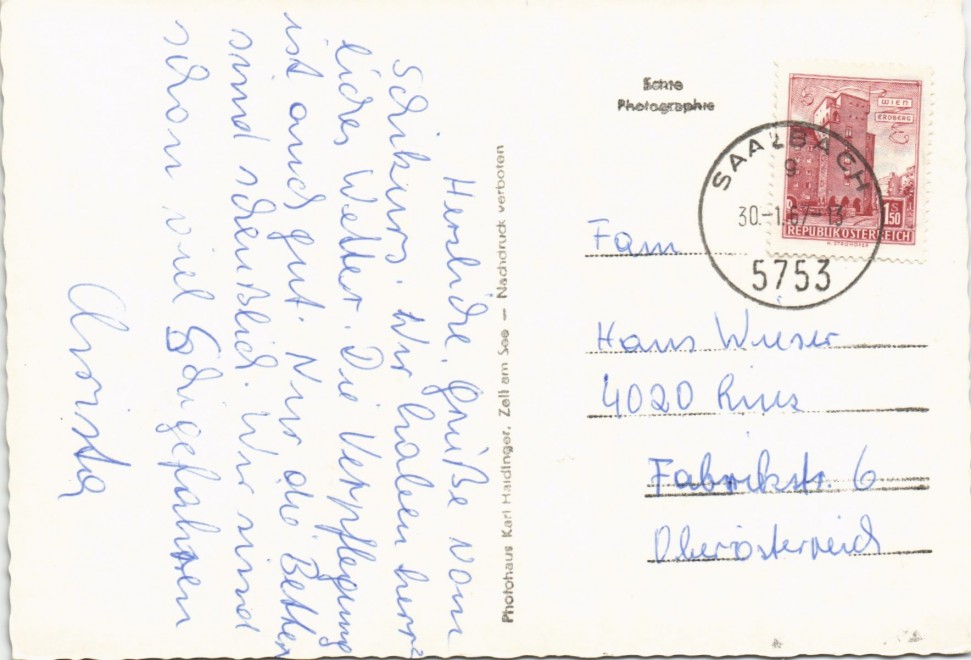 Herzliche Grüße vom
Schikurs. Wir haben herr=
liches Wetter. Die Verpflegung
ist auch gut. Nur die Betten
sind scheußlich. Wir sind
schon viel Schigefahren
Christa
Photohaus Karl Haidinger, Zell am See — Nachdruck verboten
Echte
Photographie
WIEN
ERDBERG
S
1.50
REPUBLIK ÖSTERREICH
SAALBACH
g
30.-1.67-13
5753
Fam
Hans Wieser
4020 Linz
Fabrikstr. 6
Oberösterreich